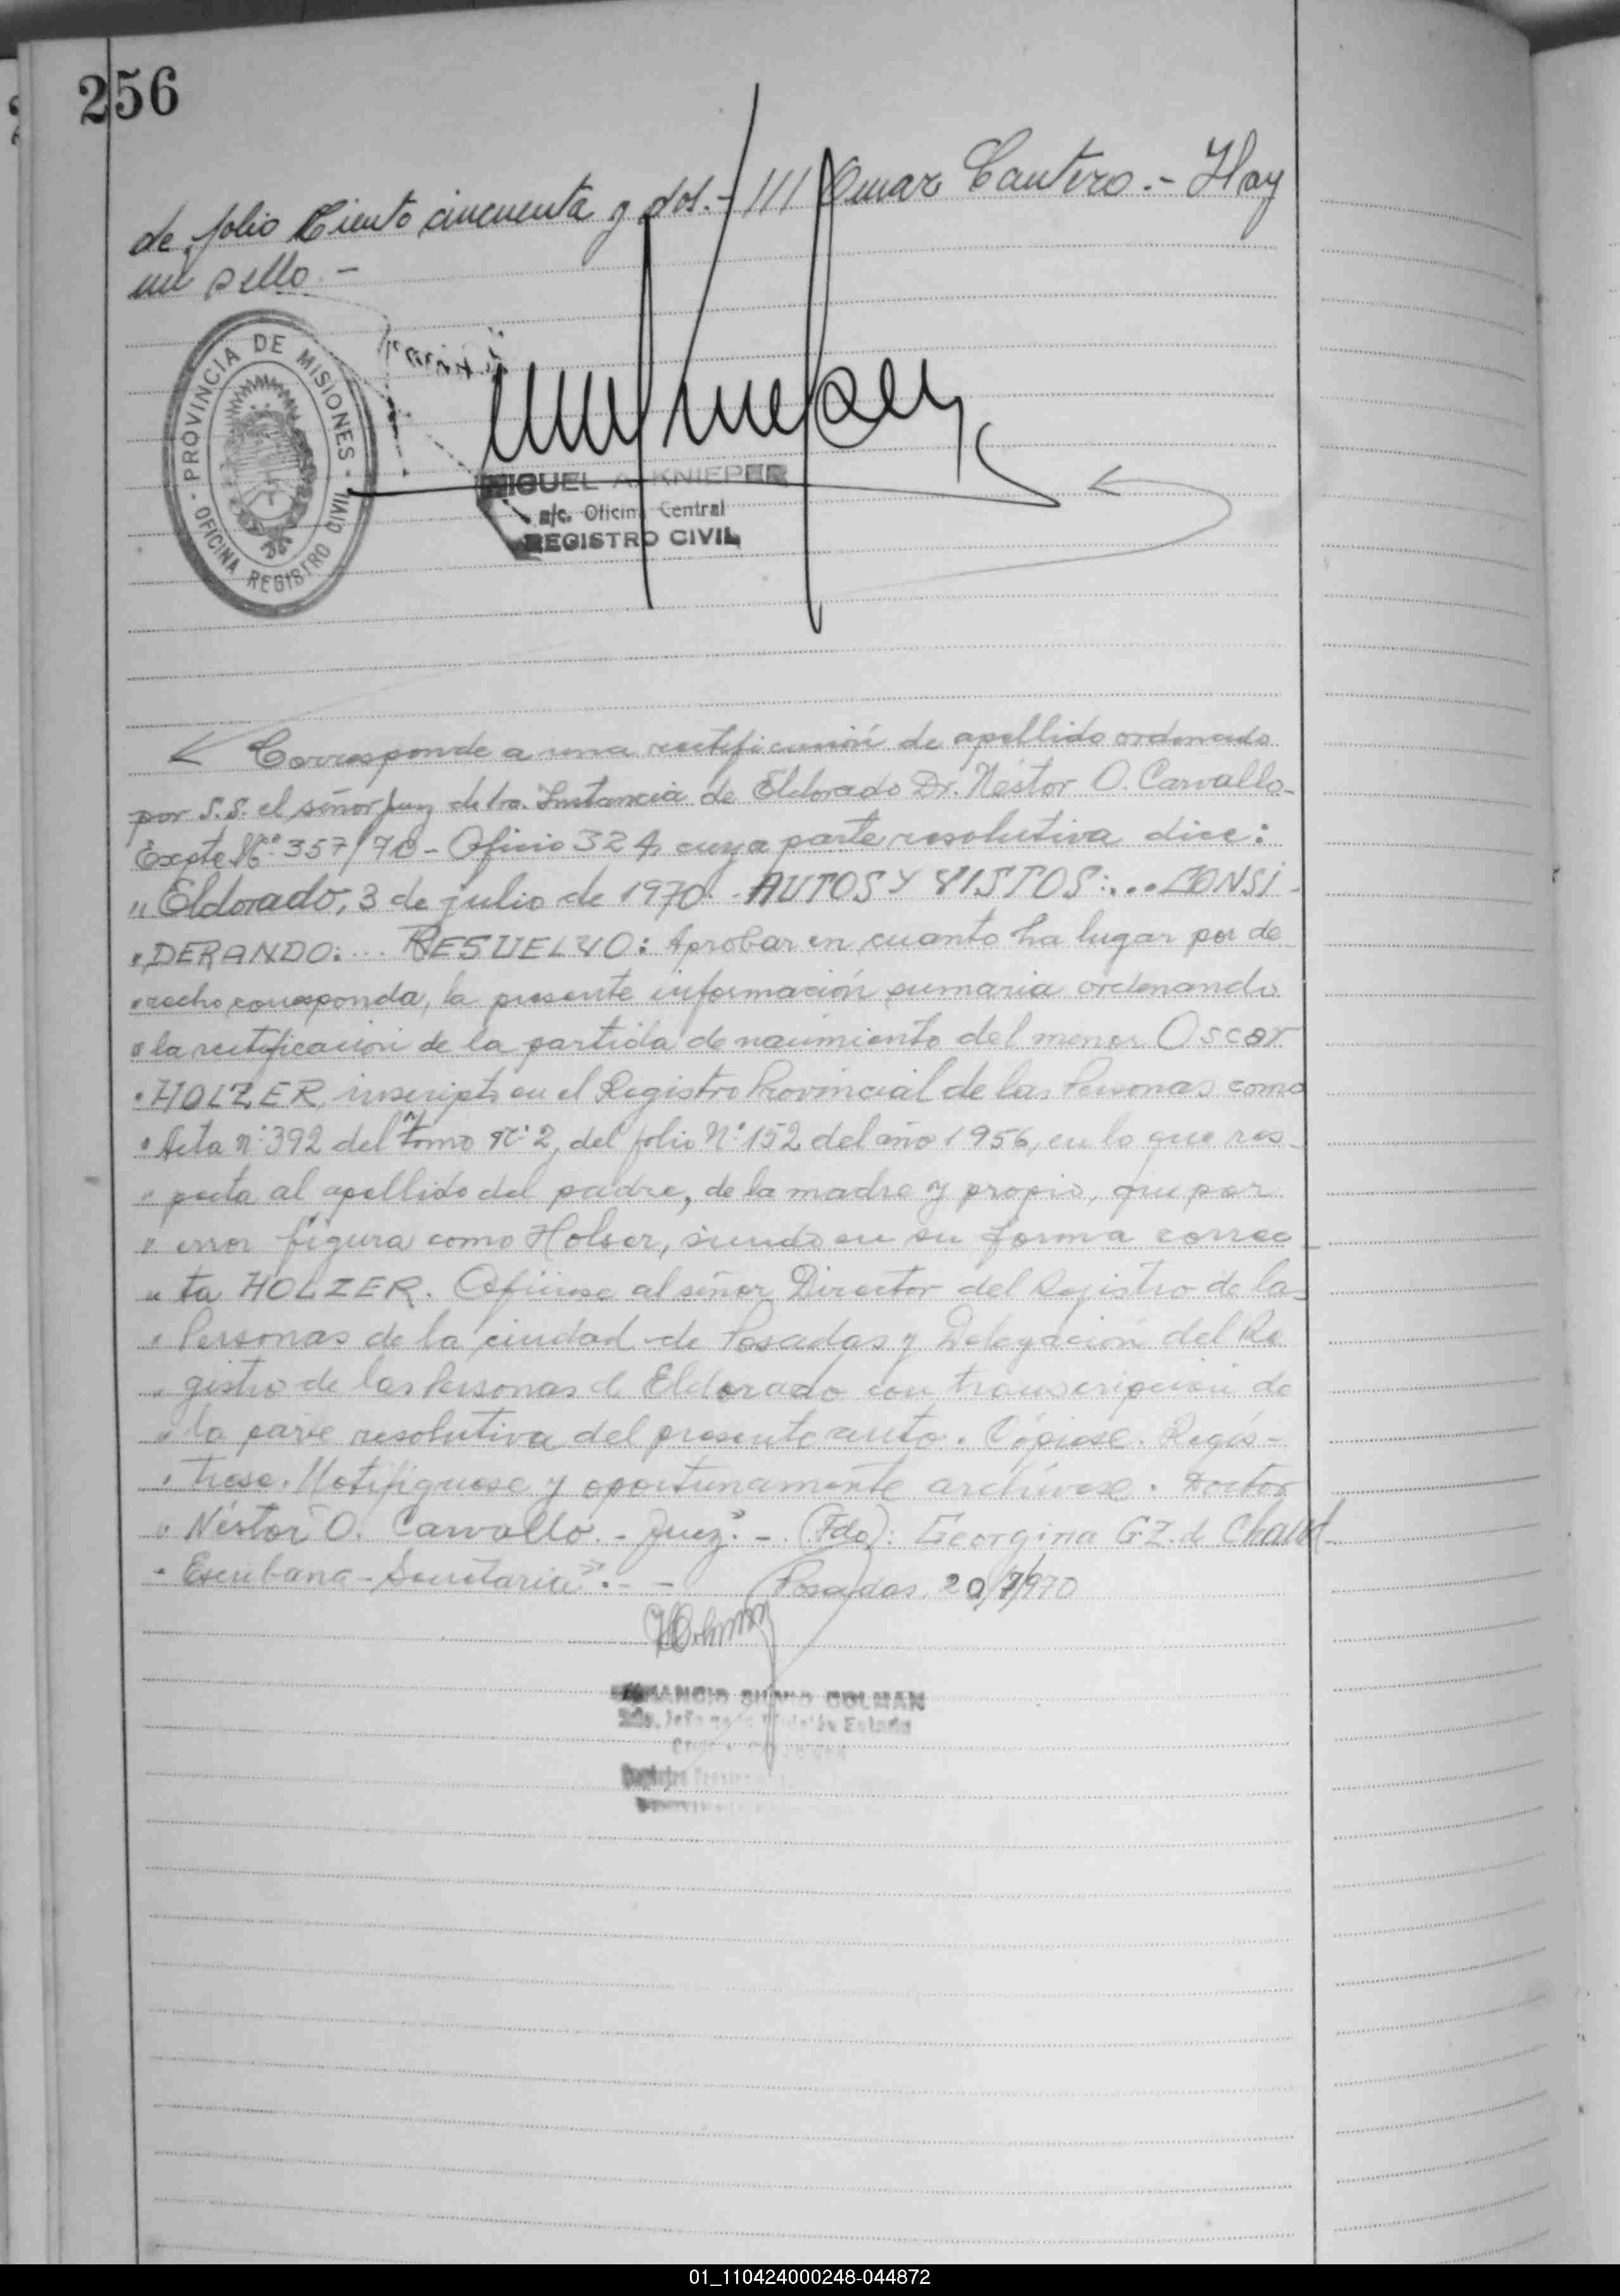 256
de folio Ciento cincuenta y dos.- /// Omar Cantero.- Hay
un sello.-
PROVINCIA DE MISIONES
- OFICINA REGISTRO CIVIL -
MIGUEL A. KNIEPER
a/c. Oficina Central
REGISTRO CIVIL
Corresponde a una rectificación de apellido ordenado
por S.S. el señor Juez de 1ra. Instancia de Eldorado Dr. Néstor O. Carvallo-
Expte Nº 357/70 - Oficio 324, cuya parte resolutiva dice:
"Eldorado, 3 de julio de 1970. AUTOS Y VISTOS:... CONSI-
"DERANDO:... RESUELVO: Aprobar en cuanto ha lugar por de-
"recho corresponda, la presente información sumaria ordenando
"la rectificación de la partida de nacimiento del menor Oscar
"HOLZER, inscripto en el Registro Provincial de las Personas como
"Acta nº 392 del tomo Nº 2, del folio Nº 152 del año 1956, en lo que res-
"pecta al apellido del padre, de la madre y propio, que por
"error figura como Holser, siendo en su forma correc-
"ta HOLZER. Ofíciese al señor Director del Registro de las
"Personas de la ciudad de Posadas y Delegación del Re
"gistro de las Personas de Eldorado con transcripción de
"la parte resolutiva del presente auto. Cópiese. Regís-
"trese. Notifíquese y oportunamente archívese. Doctor
"Néstor O. Carvallo.- Juez".- (Fdo): Georgina G.Z. de Chaud-
"Escribana-Secretaria".- -
Posadas, 20/7/970
COLMAN